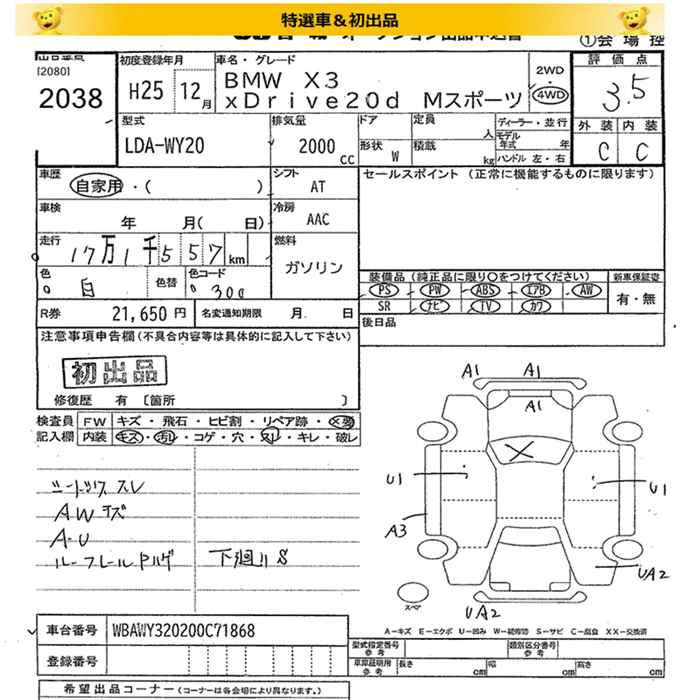 特選車＆初出品
①会場控
[20801
2038
初度登録年月
H25 12月
車名・グレード
BMW X3
xDrive20d Mスポーツ
2WD
・
4WD
評価点
3.5
型式
LDA-WY20
排気量
2000 CC
ドア
形状 W
定員 人
積載 kg
ディーラー・並行
モデル年式 年
ハンドル 左・右
外装 内装
C C
車歴
自家用・( )
シフト
AT
セールスポイント（正常に機能するものに限ります）
車検
年 月( 日)
冷房
AAC
走行
17万1千557km
燃料
ガソリン
色
白
色替
色コード
300
装備品（純正品に限り○をつけてください）
PS PW ABS エアB AW
SR ナビ TV カワ
新車保証書
有・無
R券 21,650円
名変通知期限 月 日
後日品
注意事項申告欄（不具合内容等は具体的に記入して下さい）
初出品
修復歴 有〔箇所 〕
検査員
記入欄
FW キズ・飛石・ヒビ割・リペア跡・X要
内装 キズ・汚れ・コゲ・穴・スレ・キレ・破レ
シートックス スレ
AWキズ
A-U
下廻りS
A1 A1
A1
X
U1 U1
A3
UA2
UA2
スペア
A-キズ E-エクボ U-凹み W-補修跡 S-サビ C-腐食 XX-交換済
車台番号 WBAWY320200C71868
登録番号
型式指定番号
参考
類別区分番号
参考
車庫証明用
参考
長さ cm 幅 cm 高さ cm
希望出品コーナー（コーナーは各会場により異なります。）